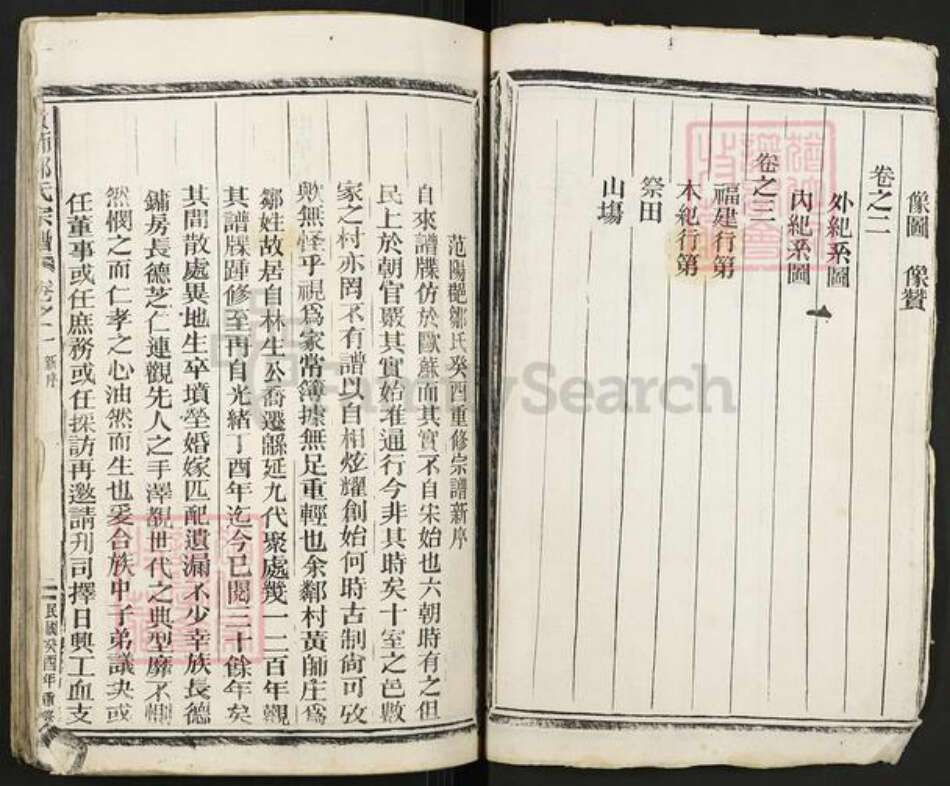 像圖 像贊
卷之二
外紀系圖
內紀系圖
卷之三
福建行第
木紀行第
祭田
山塲
范陽郡鄒氏癸酉重修宗譜新序
自來譜牒仿於歐蘇而其實不自宋始也六朝時有之但
民上於朝官嚴其實始准通行今非其時矣十室之邑數
家之村亦罔不有譜以自相炫耀創始何時古制尙可攷
歟無怪乎視爲家常簿據無足重輕也余鄰村黃師庄爲
鄒姓故居自林生公喬遷緜延九代聚處幾一二百年覩
其譜牒踵修至再自光緒丁酉年迄今已閱三十餘年矣
其間散處異地生卒墳塋婚嫁匹配遺漏不少幸族長德
鏞房長德芝仁連觀先人之手澤覩世代之典型靡不惻
然憫之而仁孝之心油然而生也爰合族中子弟議夬或
任董事或任庶務或任採訪再邀請刋司擇日興工血支
師鄒氏宗譜 卷之一 新序 二 民國癸酉年重修
FamilySearch